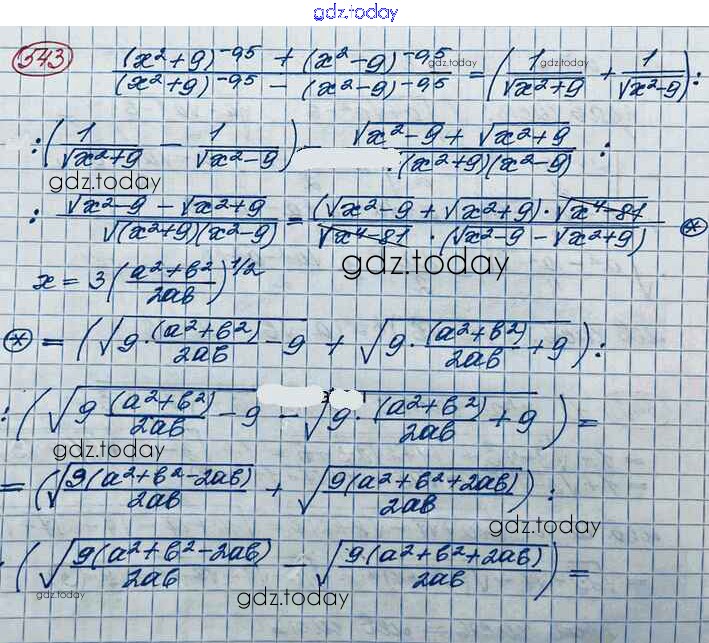 gdz.today
543 ((x²+9)^-0,5 + (x²-9)^-0,5)/((x²+9)^-0,5 - (x²-9)^-0,5) = (1/√(x²+9) + 1/√(x²-9)) :
gdz.today
: (1/√(x²+9) - 1/√(x²-9)) = (√(x²-9) + √(x²+9))/((x²+9)(x²-9)) :
gdz.today
: (√(x²-9) - √(x²+9))/√((x²+9)(x²-9)) = ((√(x²-9) + √(x²+9)) · √(x⁴-81))/(√(x⁴-81) · (√(x²-9) - √(x²+9))) ⊛
gdz.today
x = 3((a²+b²)/2ab)^1/2
⊛ = (√(9·(a²+b²)/2ab - 9) + √(9·(a²+b²)/2ab + 9)) :
: (√(9(a²+b²)/2ab - 9) - √(9·(a²+b²)/2ab + 9)) =
gdz.today
= (√(9(a²+b²-2ab)/2ab) + √(9(a²+b²+2ab)/2ab)) :
gdz.today
: (√(9(a²+b²-2ab)/2ab) - √(9·(a²+b²+2ab)/2ab)) =
gdz.today
gdz.today